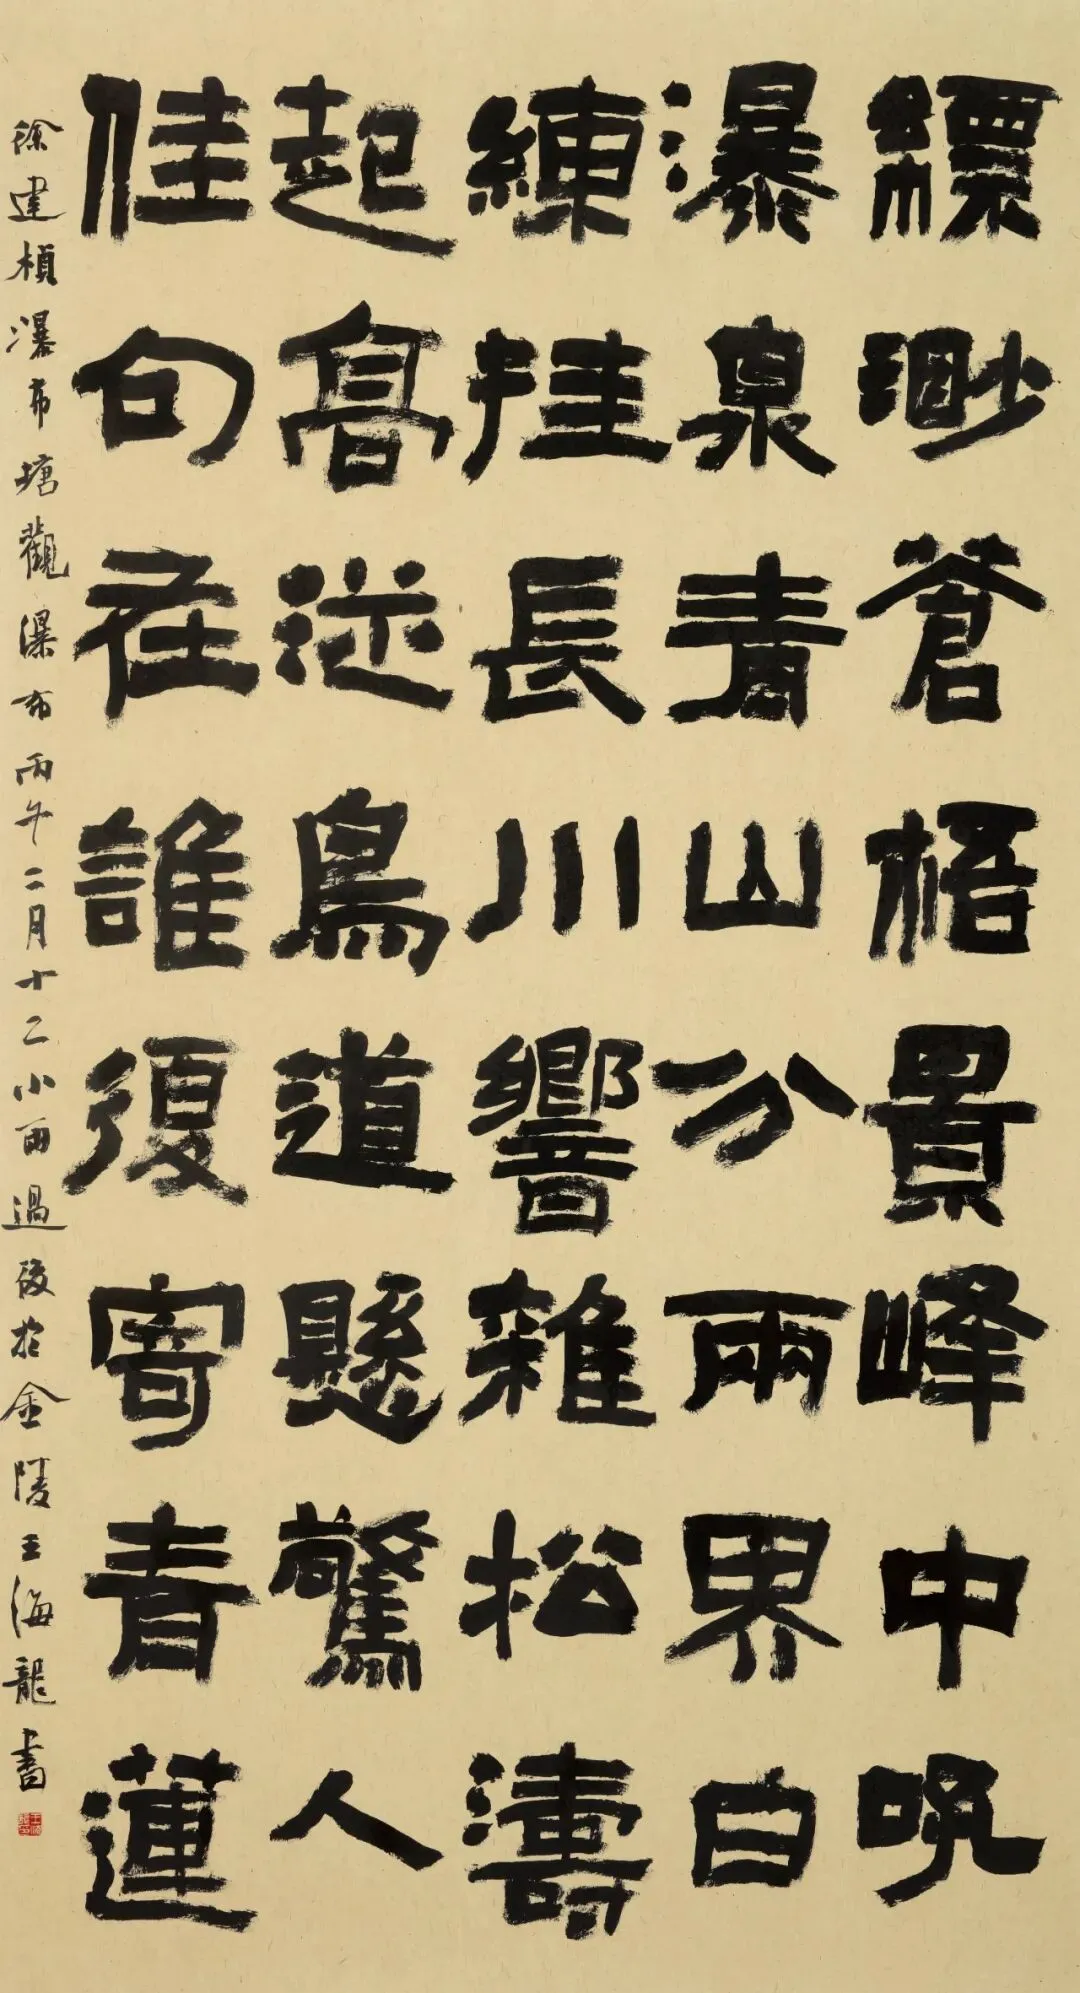 縹緲蒼梧景峰中吼
瀑泉青山分兩界白
練挂長川響雜松濤
起高從鳥道懸驚人
佳句在誰復寄青蓮
徐建楨瀑布塘觀瀑布丙午二月十二小雨過後於金陵王海龍書